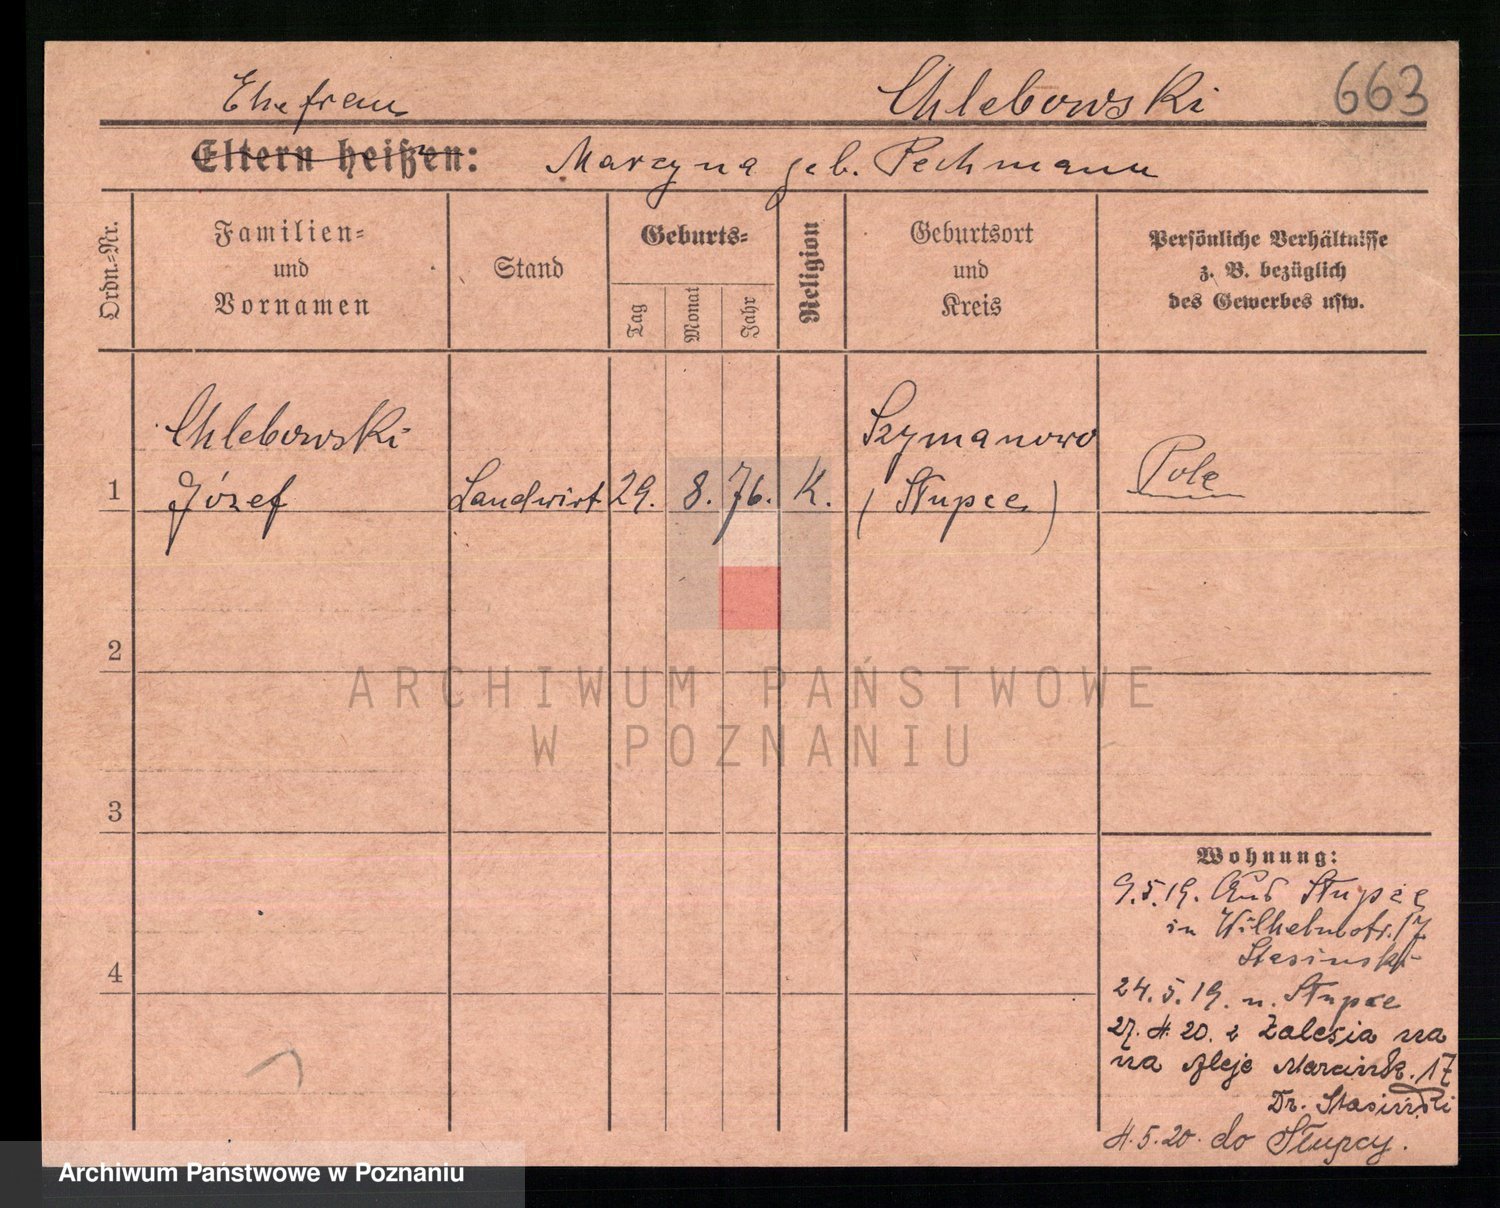 Ehefrau
Chlebowski
663
Eltern heißen: Marcyna geb. Pechmann
Ordn.-Nr.
Familien-
und
Vornamen
Stand
Geburts-
Tag
Monat
Jahr
Religion
Geburtsort
und
Kreis
Persönliche Verhältnisse
z. B. bezüglich
des Gewerbes usw.
Chlebowski
Józef
1
Landwirt
29. 8. 76. K.
Szymanowo
(Słupce)
Pole
2
ARCHIWUM PAŃSTWOWE
W POZNANIU
3
4
Wohnung:
9.5.19. Aus Słupce
in Wilhelmstr. 17
Stasinski
24.5.19. n. Słupce
27. 4. 20. z Zalesia na
na Aleje Marcink. 17
Dr. Stasiński
4.5.20. do Słupcy.
Archiwum Państwowe w Poznaniu